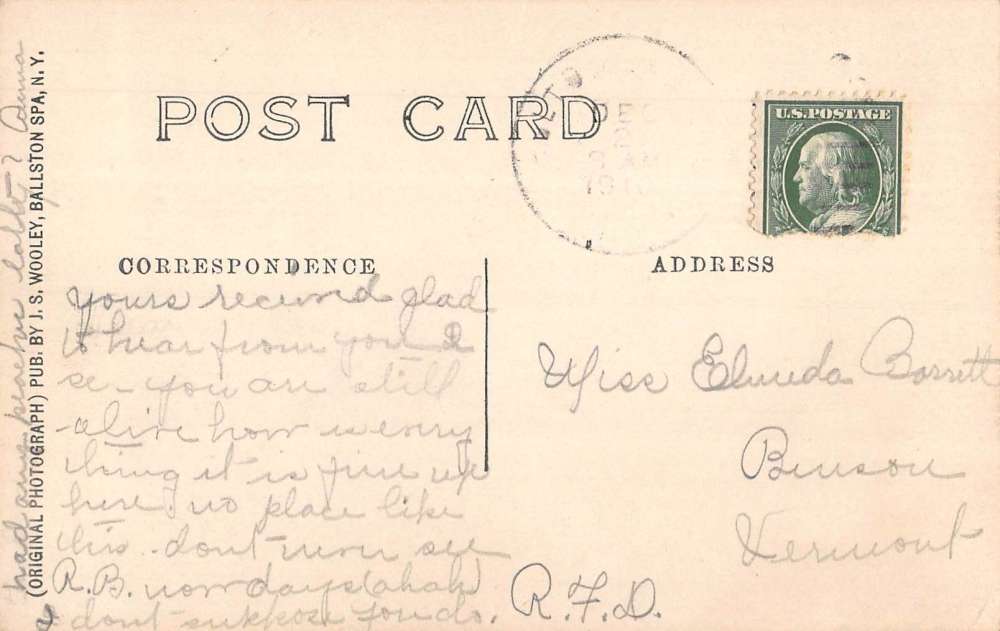 POST CARD
DEC
U.S. POSTAGE
CORRESPONDENCE
ADDRESS
yours received glad
to hear from you I
se you are still
alive how is every
thing it is fine up
here. no place like
this. dont never see
R.B. now days (ahah)
dont suppose you do.
had any lately? Anna
Miss Elmeda Barrett
Benson
Vermont
R.F.D.
(ORIGINAL PHOTOGRAPH) PUB. BY J. S. WOOLEY, BALLSTON SPA, N. Y.